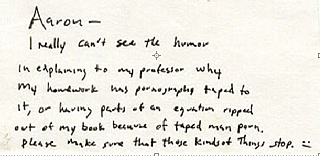 Aaron —
I really can't see the humor
in explaining to my professor why
my homework has pornography taped to
it, or having parts of an equation ripped
out of my book because of taped man porn.
Please make sure that those kinds of things stop. :-|